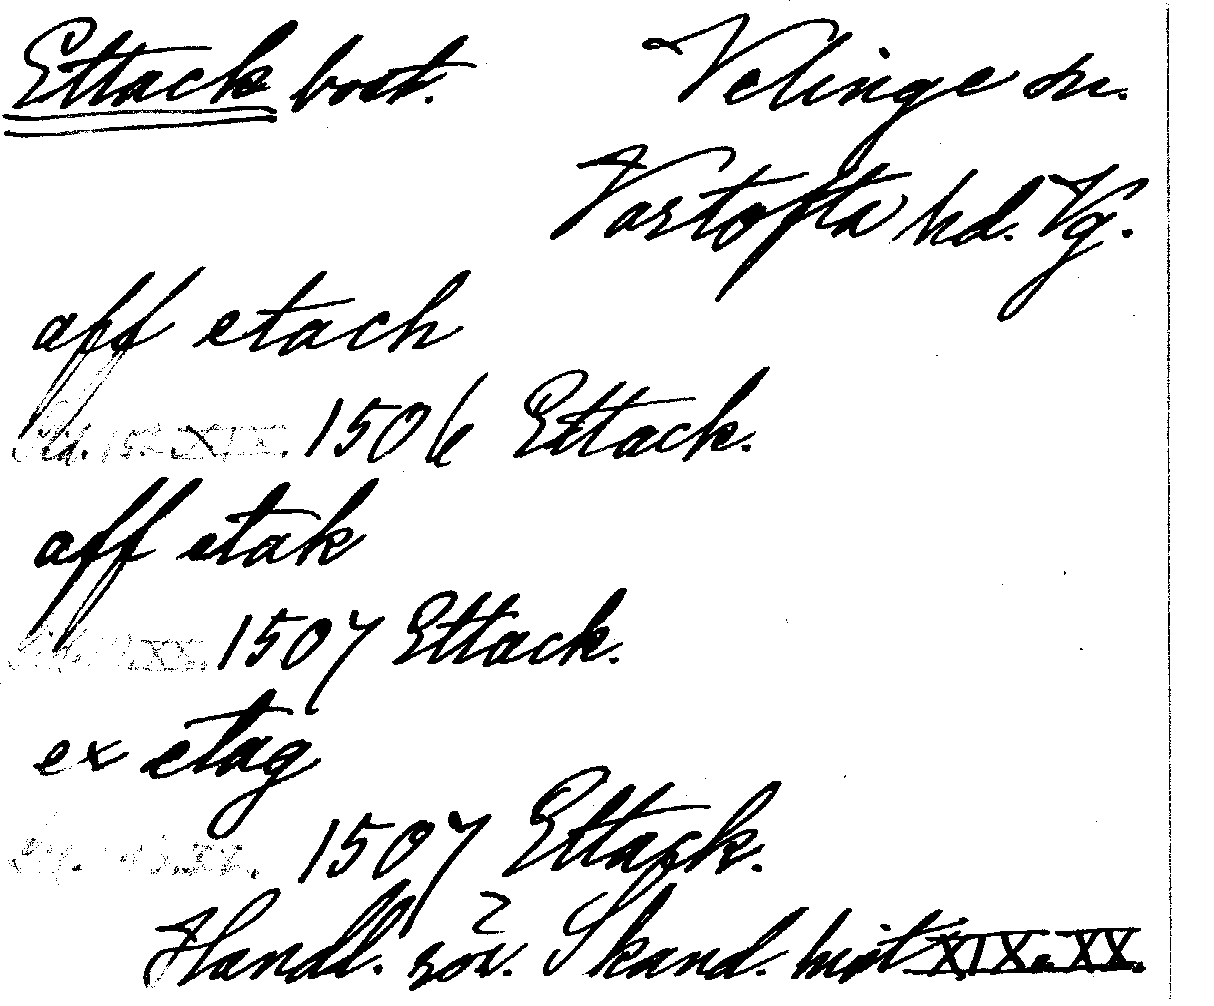 Ettack bost. Velinge sn.
Vartofta hd. Vg.
aff etach
1506 Ettack.
aff etak
1507 Ettack.
ex etag
1507 Ettack.
Handl. rör. Skand. hist. XIX. XX.